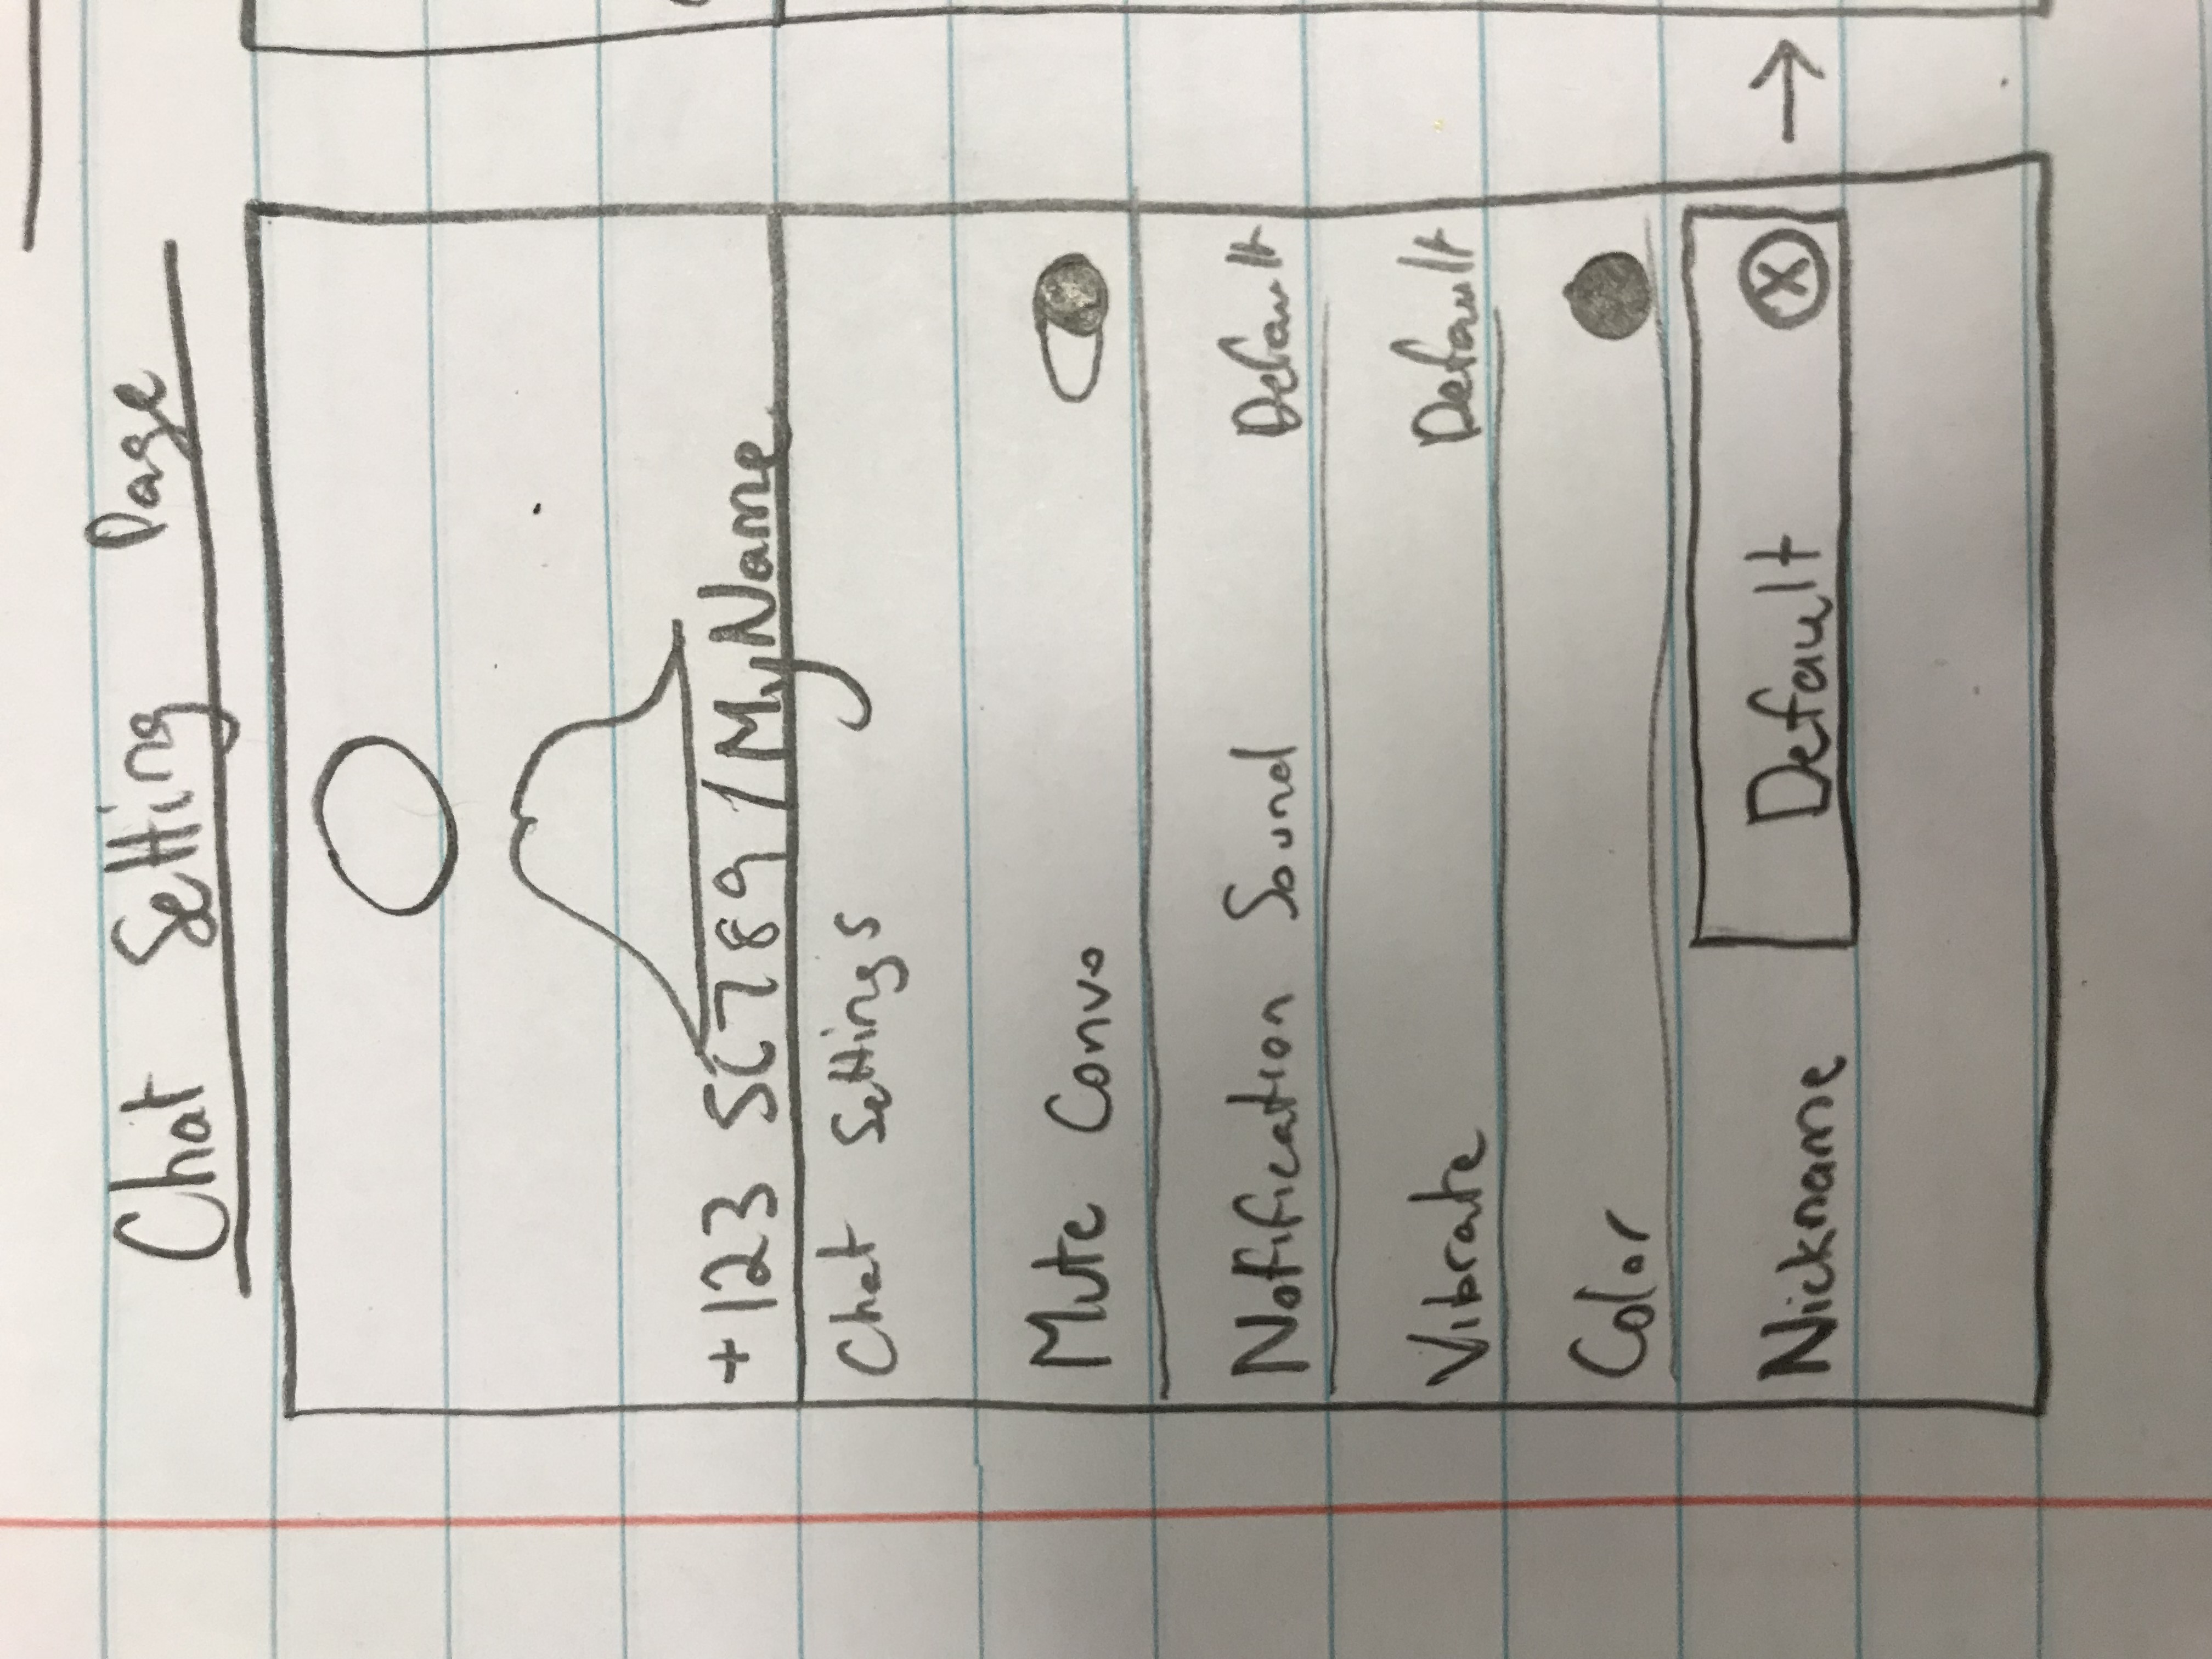 Chat Setting Page
+123 56789 / MyName
Chat Settings
Mute Convo
Notification Sound Default
Vibrate Default
Color
Nickname Default X